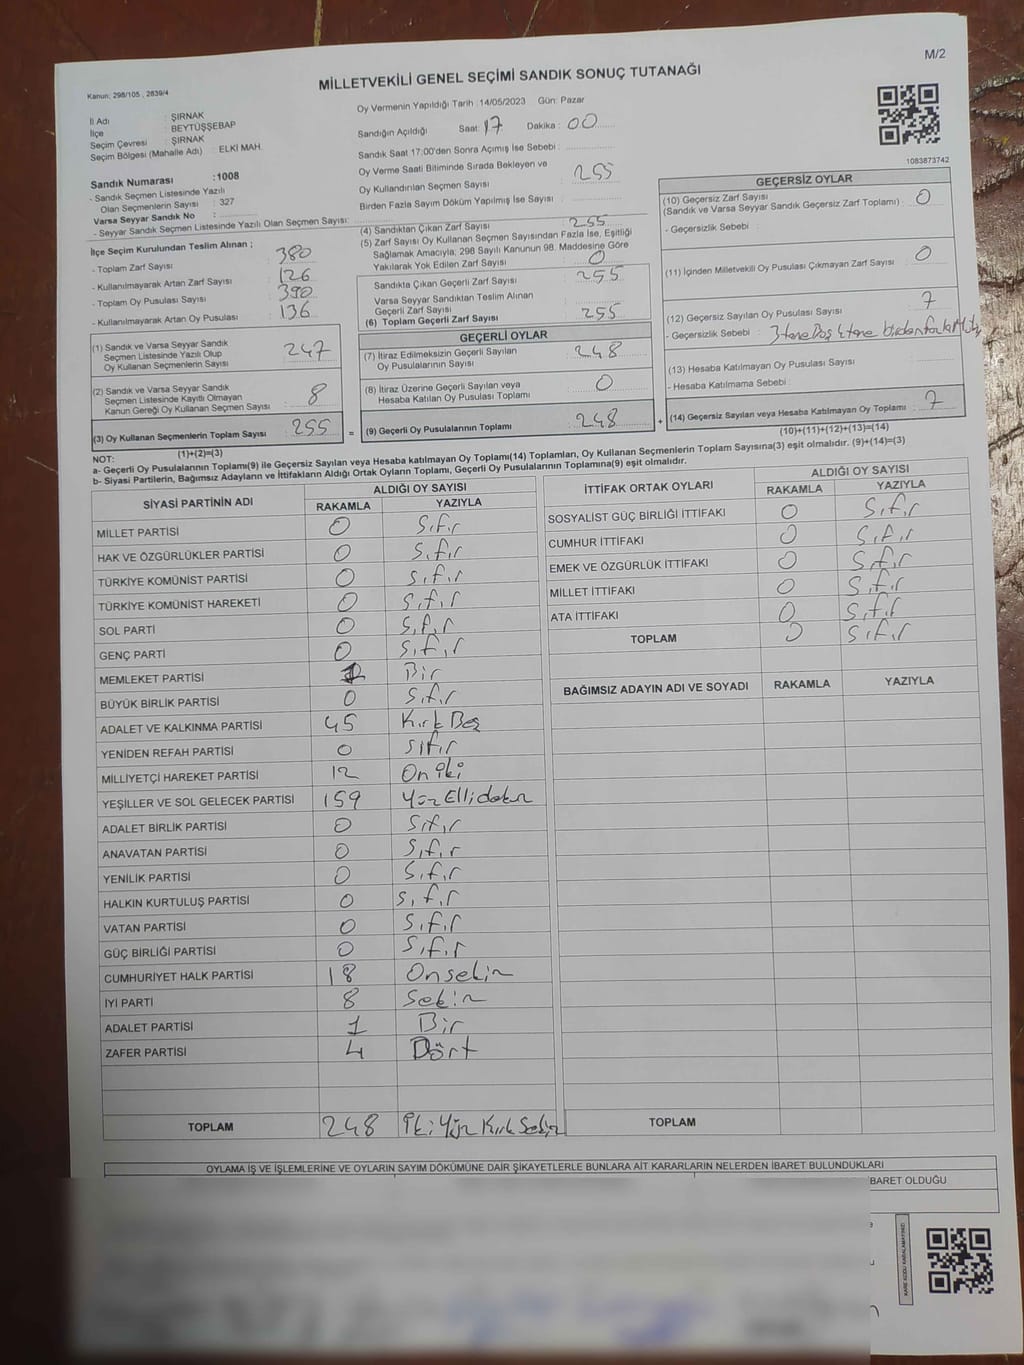 M/2
Kanun; 298/105 , 2839/4
MİLLETVEKİLİ GENEL SEÇİMİ SANDIK SONUÇ TUTANAĞI
İl Adı : ŞIRNAK
İlçe : BEYTÜŞŞEBAP
Seçim Çevresi : ŞIRNAK
Seçim Bölgesi (Mahalle Adı) : ELKİ MAH.
Sandık Numarası :1008
- Sandık Seçmen Listesinde Yazılı
Olan Seçmenlerin Sayısı : 327
Varsa Seyyar Sandık No :
- Seyyar Sandık Seçmen Listesinde Yazılı Olan Seçmen Sayısı:
Oy Vermenin Yapıldığı Tarih :14/05/2023 Gün: Pazar
Sandığın Açıldığı Saat: 17 Dakika : 00
Sandık Saat 17:00'den Sonra Açımış İse Sebebi :
Oy Verme Saati Bitiminde Sırada Bekleyen ve
Oy Kullandırılan Seçmen Sayısı : 255
Birden Fazla Sayım Döküm Yapılmış İse Sayısı :
1083873742
İlçe Seçim Kurulundan Teslim Alınan ;
- Toplam Zarf Sayısı : 380
- Kullanılmayarak Artan Zarf Sayısı : 126
- Toplam Oy Pusulası Sayısı : 390
- Kullanılmayarak Artan Oy Pusulası : 136
(1) Sandık ve Varsa Seyyar Sandık
Seçmen Listesinde Yazılı Olup
Oy Kullanan Seçmenlerin Sayısı : 247
(2) Sandık ve Varsa Seyyar Sandık
Seçmen Listesinde Kayıtlı Olmayan
Kanun Gereği Oy Kullanan Seçmen Sayısı : 8
(3) Oy Kullanan Seçmenlerin Toplam Sayısı : 255 =
(1)+(2)=(3)
(4) Sandıktan Çıkan Zarf Sayısı : 255
(5) Zarf Sayısı Oy Kullanan Seçmen Sayısından Fazla İse, Eşitliği
Sağlamak Amacıyla; 298 Sayılı Kanunun 98. Maddesine Göre
Yakılarak Yok Edilen Zarf Sayısı : 0
Sandıkta Çıkan Geçerli Zarf Sayısı : 255
Varsa Seyyar Sandıktan Teslim Alınan
Geçerli Zarf Sayısı :
(6) Toplam Geçerli Zarf Sayısı : 255
GEÇERLİ OYLAR
(7) İtiraz Edilmeksizin Geçerli Sayılan
Oy Pusulalarının Sayısı : 248
(8) İtiraz Üzerine Geçerli Sayılan veya
Hesaba Katılan Oy Pusulası Toplamı : 0
(9) Geçerli Oy Pusulalarının Toplamı : 248 +
GEÇERSİZ OYLAR
(10) Geçersiz Zarf Sayısı
(Sandık ve Varsa Seyyar Sandık Geçersiz Zarf Toplamı) : 0
- Geçersizlik Sebebi :
(11) İçinden Milletvekili Oy Pusulası Çıkmayan Zarf Sayısı : 0
(12) Geçersiz Sayılan Oy Pusulası Sayısı : 7
- Geçersizlik Sebebi : 3 tane Boş 4 tane birden fazla Mühür
(13) Hesaba Katılmayan Oy Pusulası Sayısı :
- Hesaba Katılmama Sebebi :
(14) Geçersiz Sayılan veya Hesaba Katılmayan Oy Toplamı : 7
(10)+(11)+(12)+(13)=(14)
NOT:
a- Geçerli Oy Pusulalarının Toplamı(9) ile Geçersiz Sayılan veya Hesaba katılmayan Oy Toplamı(14) Toplamları, Oy Kullanan Seçmenlerin Toplam Sayısına(3) eşit olmalıdır. (9)+(14)=(3)
b- Siyasi Partilerin, Bağımsız Adayların ve İttifakların Aldığı Ortak Oyların Toplamı, Geçerli Oy Pusulalarının Toplamına(9) eşit olmalıdır.
SİYASİ PARTİNİN ADI ALDIĞI OY SAYISI
RAKAMLA YAZIYLA
MİLLET PARTİSİ 0 Sıfır
HAK VE ÖZGÜRLÜKLER PARTİSİ 0 Sıfır
TÜRKİYE KOMÜNİST PARTİSİ 0 Sıfır
TÜRKİYE KOMÜNİST HAREKETİ 0 Sıfır
SOL PARTİ 0 Sıfır
GENÇ PARTİ 0 Sıfır
MEMLEKET PARTİSİ 1 Bir
BÜYÜK BİRLİK PARTİSİ 0 Sıfır
ADALET VE KALKINMA PARTİSİ 45 Kırk Beş
YENİDEN REFAH PARTİSİ 0 Sıfır
MİLLİYETÇİ HAREKET PARTİSİ 12 On iki
YEŞİLLER VE SOL GELECEK PARTİSİ 159 Yüz Elli dokuz
ADALET BİRLİK PARTİSİ 0 Sıfır
ANAVATAN PARTİSİ 0 Sıfır
YENİLİK PARTİSİ 0 Sıfır
HALKIN KURTULUŞ PARTİSİ 0 Sıfır
VATAN PARTİSİ 0 Sıfır
GÜÇ BİRLİĞİ PARTİSİ 0 Sıfır
CUMHURİYET HALK PARTİSİ 18 Onsekiz
İYİ PARTİ 8 Sekiz
ADALET PARTİSİ 1 Bir
ZAFER PARTİSİ 4 Dört
TOPLAM 248 İki Yüz Kırk Sekiz
İTTİFAK ORTAK OYLARI ALDIĞI OY SAYISI
RAKAMLA YAZIYLA
SOSYALİST GÜÇ BİRLİĞİ İTTİFAKI 0 Sıfır
CUMHUR İTTİFAKI 0 Sıfır
EMEK VE ÖZGÜRLÜK İTTİFAKI 0 Sıfır
MİLLET İTTİFAKI 0 Sıfır
ATA İTTİFAKI 0 Sıfır
TOPLAM 0 Sıfır
BAĞIMSIZ ADAYIN ADI VE SOYADI RAKAMLA YAZIYLA
TOPLAM
OYLAMA İŞ VE İŞLEMLERİNE VE OYLARIN SAYIM DÖKÜMÜNE DAİR ŞİKAYETLERLE BUNLARA AİT KARARLARIN NELERDEN İBARET BULUNDUKLARI
BARET OLDUĞU
KARE KODU KARALAMAYINIZ!